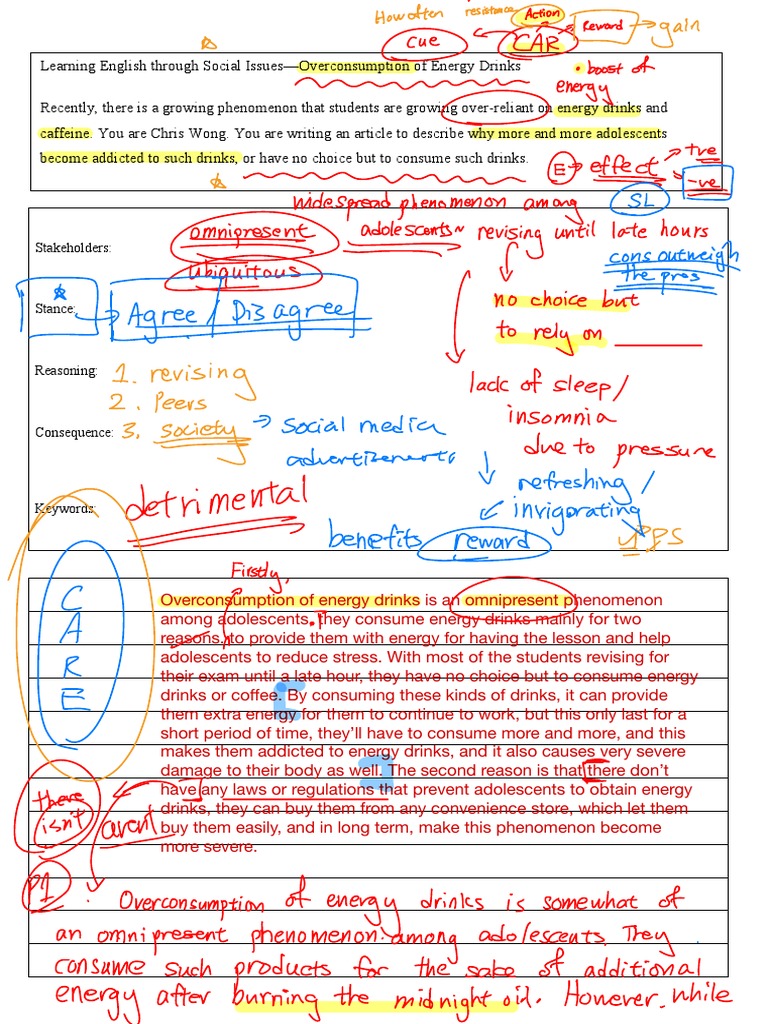 How often resistance Action Reward → gain
cue CAR
Learning English through Social Issues—Overconsumption of Energy Drinks
• boost of
energy
Recently, there is a growing phenomenon that students are growing over-reliant on energy drinks and
caffeine. You are Chris Wong. You are writing an article to describe why more and more adolescents
become addicted to such drinks, or have no choice but to consume such drinks.
E → effect → +ve
-ve
widespread phenomenon among SL
omnipresent adolescents ~ revising until late hours
Stakeholders:
cons outweigh
the pros
ubiquitous
Stance: → Agree / Disagree
no choice but
to rely on
Reasoning: 1. revising
lack of sleep/
2. Peers
insomnia
Consequence: 3. society → social media
advertizements
due to pressure
refreshing /
invigorating
Keywords: detrimental
benefits reward
UPPS
C
A
R
E
Firstly,
Overconsumption of energy drinks is an omnipresent phenomenon
among adolescents. They consume energy drinks mainly for two
reasons, to provide them with energy for having the lesson and help
adolescents to reduce stress. With most of the students revising for
their exam until a late hour, they have no choice but to consume energy
drinks or coffee. By consuming these kinds of drinks, it can provide
them extra energy for them to continue to work, but this only last for a
short period of time, they'll have to consume more and more, and this
makes them addicted to energy drinks, and it also causes very severe
damage to their body as well. The second reason is that there don't
have any laws or regulations that prevent adolescents to obtain energy
drinks, they can buy them from any convenience store, which let them
buy them easily, and in long term, make this phenomenon become
more severe.
there
isn't
aren't
P1
Overconsumption of energy drinks is somewhat of
an omnipresent phenomenon among adolescents. They
consume such products for the sake of additional
energy after burning the midnight oil. However, while